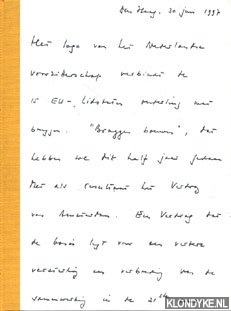 Den Haag, 30 juni 1997
Het logo van het Nederlandse
voorzitterschap verbindt de
15 EU-lidstaten onderling met
bruggen. "Bruggen bouwen", dat
hebben we dit half jaar gedaan
Met als resultaat het Verdrag
van Amsterdam. Een Verdrag dat
de basis legt voor een verdere
verdieping en verbreding van de
samenwerking in de 21ste
KLONDYKE.NL